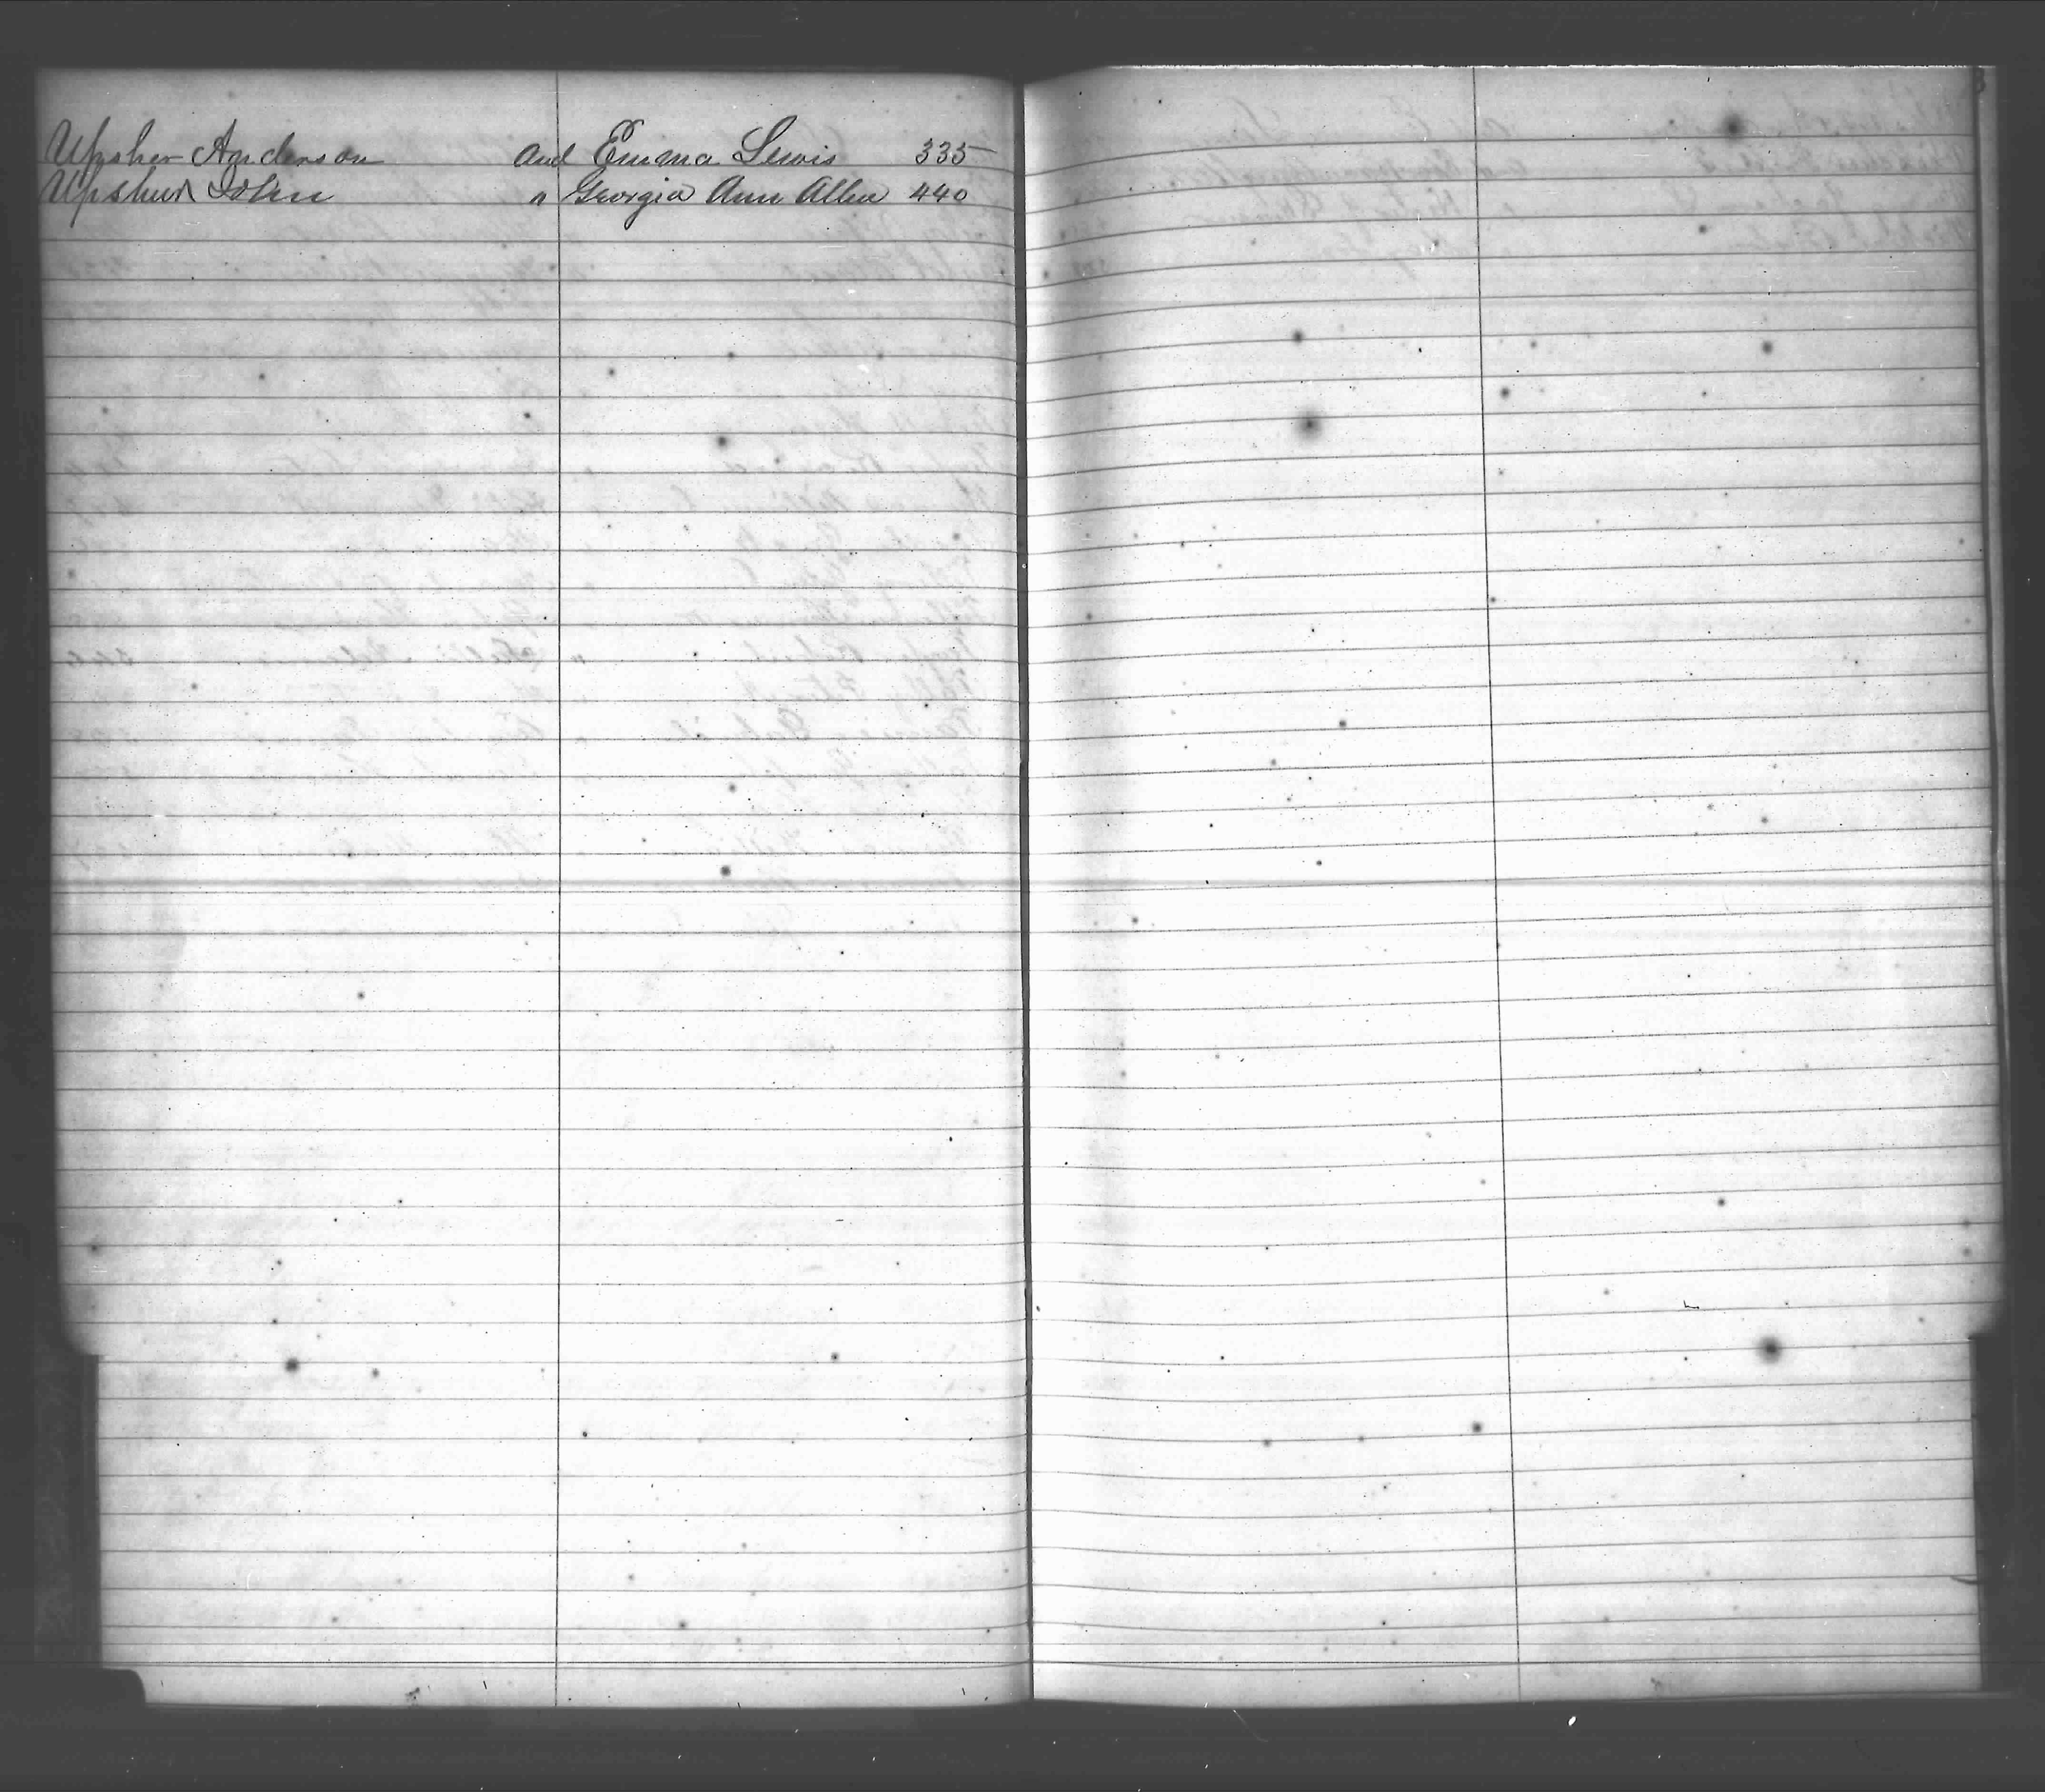 Upsher Anderson and Emma Lewis 335
Upshur John " Georgia Ann Allen 440